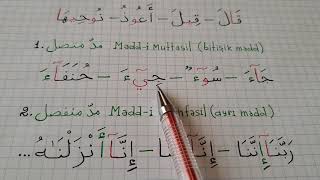 قَالَ – قِيلَ – أَعُوذُ – نُوحِيهَا
1. مدّ متصل Madd-i Muttasıl (bitişik madd)
جَآءَ – سُوٓءٌ – جِيٓءَ – حُنَفَآءَ
2. مدّ منفصل Madd-i (ayrı madd)
رَبَّنَآإِنَّنَا – إِنَّآ – إِنَّآأَنْزَلْنَاهُ...